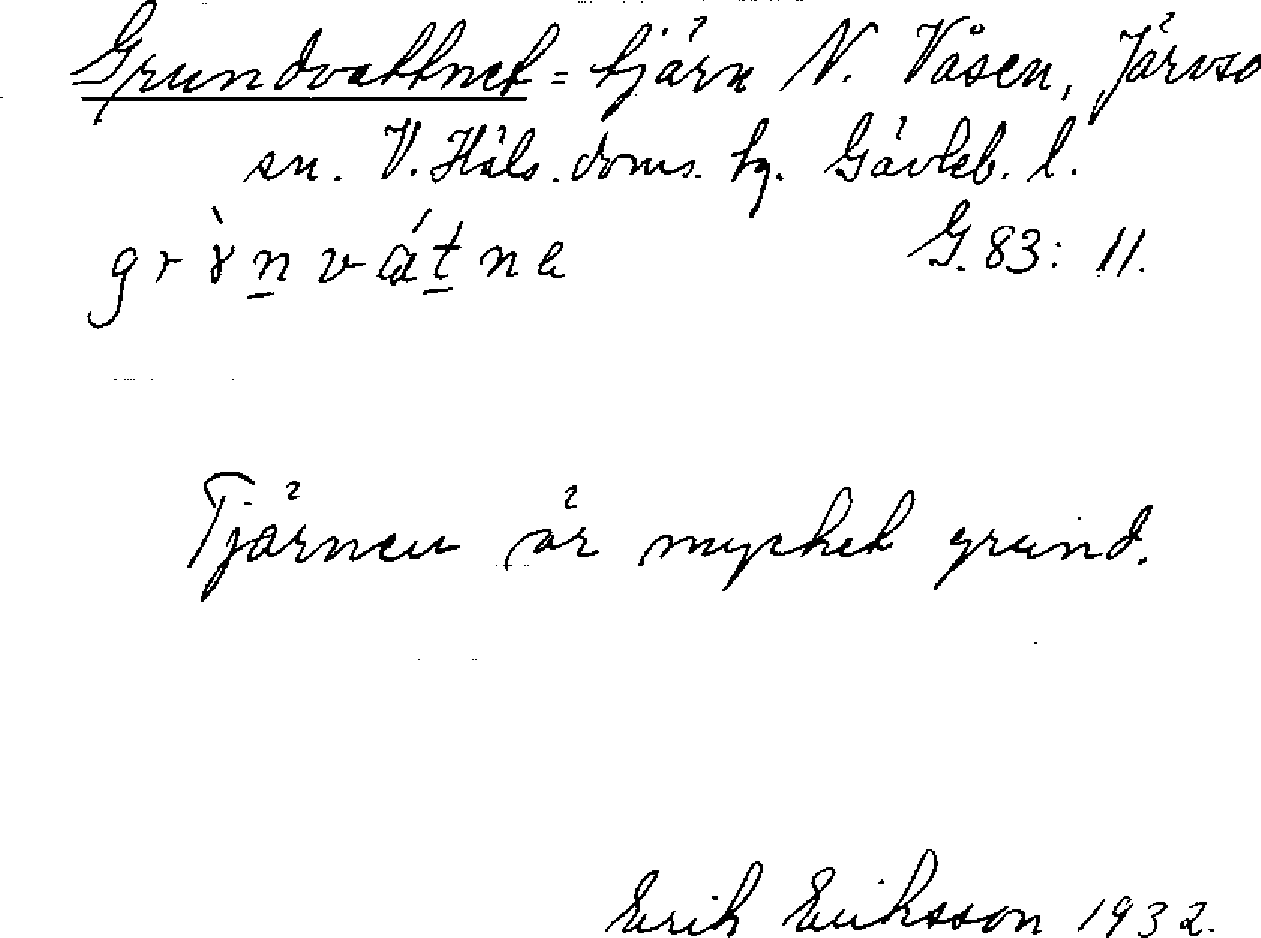 Grundvattnet = tjärn N. Våsen, Järvsö
sn. V. Häls. doms. hg. Gävleb. l.
G. 83: 11.
Tjärnen är mycket grund.
Erik Eriksson 1932.